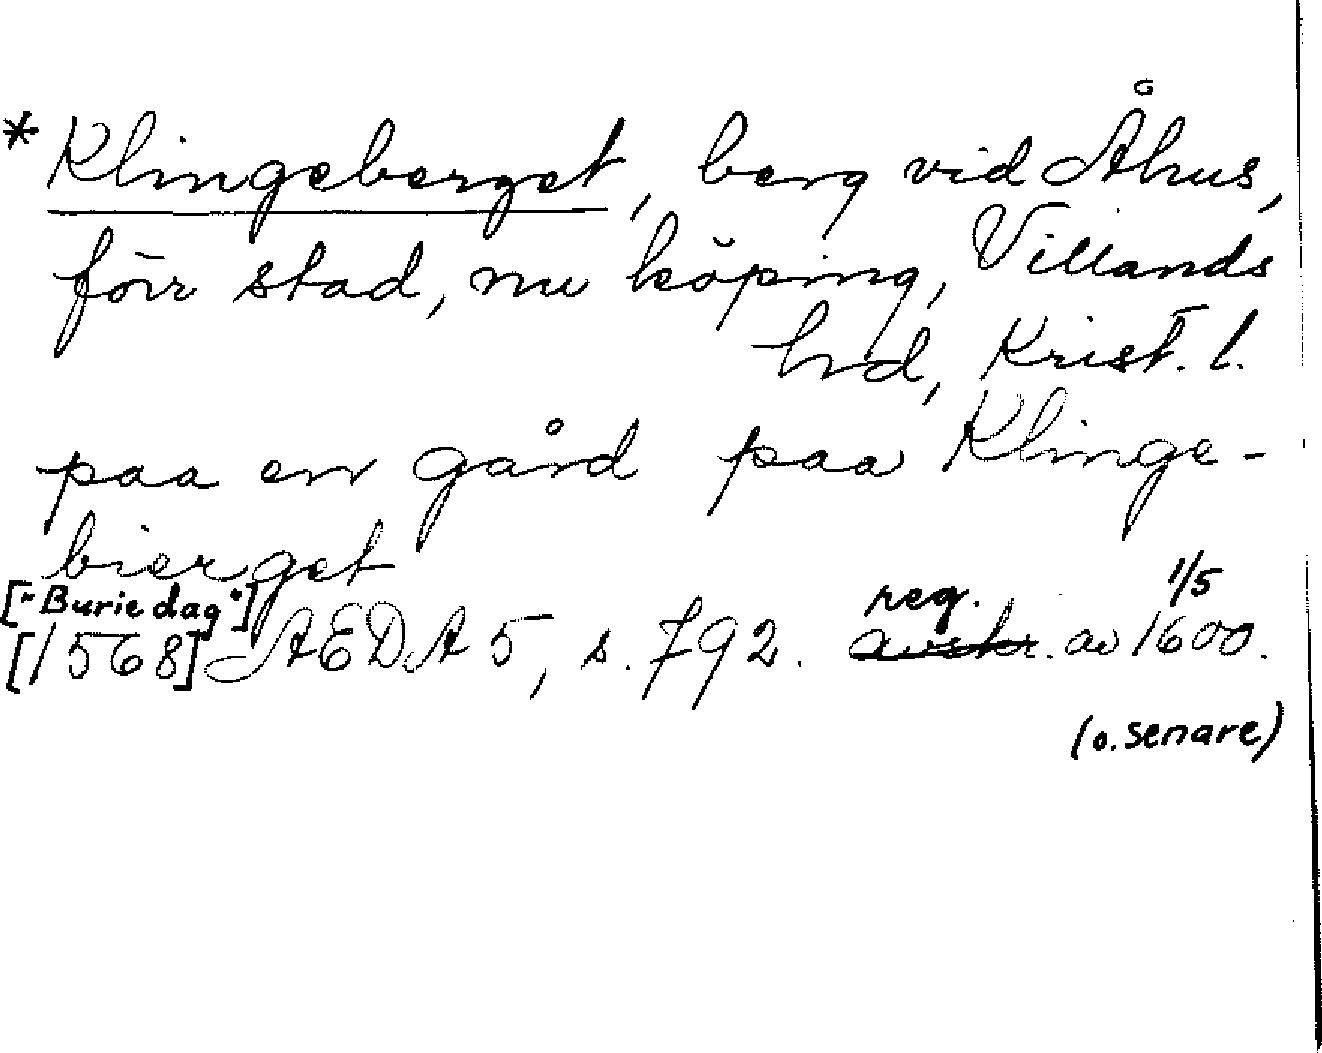 * Klingeberget, berg vid Åhus,
förr stad, nu köping, Villands
hd, Krist. l.
paa en gård paa Klinge-
bierget
["Burie dag"] reg. 1/5
[1568] AEDA 5, s. 792. avskr. av 1600.
(o. senare)